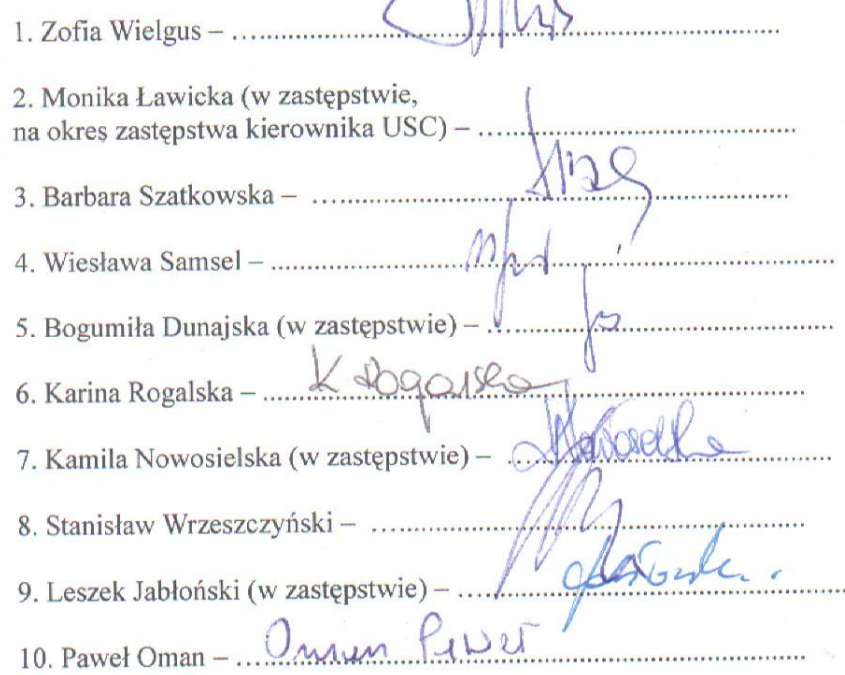 1. Zofia Wielgus – ...............................................................................
2. Monika Ławicka (w zastępstwie,
na okres zastępstwa kierownika USC) – ..............................................
3. Barbara Szatkowska – ....................................................................
4. Wiesława Samsel – ................................................................................
5. Bogumiła Dunajska (w zastępstwie) – .................................................
6. Karina Rogalska – ............................................................................... K Rogalska
7. Kamila Nowosielska (w zastępstwie) – ..............................................
8. Stanisław Wrzeszczyński – ..............................................................
9. Leszek Jabłoński (w zastępstwie) – .......................................................
10. Paweł Oman – .................................................................................. Oman Paweł